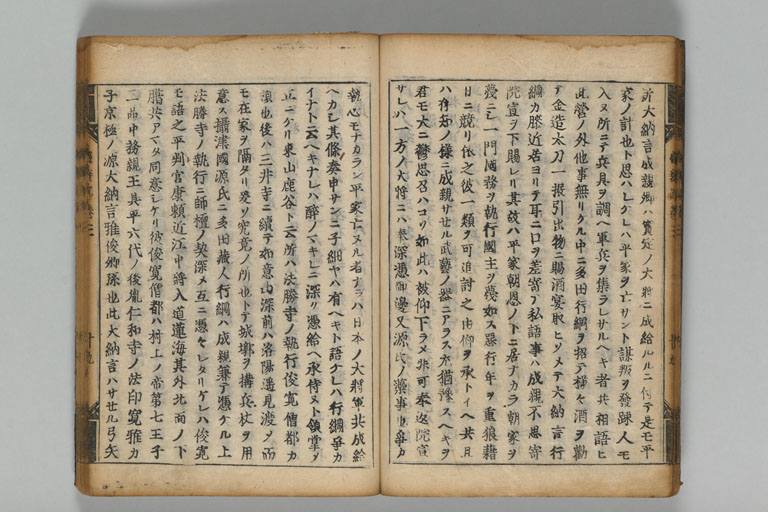 新大納言成親卿ハ實定ノ大将ニ成給ルニ付テ是モ平
家ノ計也ト思ハレケレハ平家ヲ亡サント謀叛ヲ發疎人モ
入ヌ所ニテ兵具ヲ調ヘ軍兵ヲ集ラレサルヘキ者共相語ヒ
此營ノ外他事無リケル中ニ多田行綱ヲ招テ様々酒ヲ勸
テ金造太刀一振引出物ニ賜酒宴取ヒソメテ大納言行
綱カ膝近居ヨリテ耳ニ口ヲ差寄テ私語事ハ成親不思寄
院宣ヲ下賜レリ其故ハ平家朝恩ノ下ニ居ナカラ朝家ヲ
蔑ニシ一門國務ヲ執行國主ヲ蔑如ス悪行年ヲ重狼藉
日ニ競リ依之彼一類可追討之由仰ヲ承トイヘ共且
ハ存知ノ様ニ成親サセル武藝ノ器ニアラス猶豫スヘキヲ
君モ大ニ鬱思召ハコソ如此ハ被仰下ラメ非可奉返院宣
サレハ一方ノ大将ニハ奉深憑御邊又源氏ノ藁事也争カ
執心モナカラン平家亡ヌル者ナラハ日本ノ大将軍共成給
ヘカシ其條奏申サンニ子細ヤハ有ヘキト語ケレハ行綱争カ
イナト云ヘキナレハ酔ノマキレニ深ク憑給ヘ承侍ヌト領掌ノ
正ニケリ東山鹿谷ト云所ハ法勝寺ノ執行俊寛僧都カ
領也後ハ三井寺ニ續テ如意山深前ハ洛陽遥見渡ノ而
モ在家ヲ隔タリ爰ソ究竟ノ所也トテ城郭ヲ搆兵杖ヲ用
意ス攝津國源氏ニ多田蔵人行綱ハ成親兼テ憑ケル上
法勝寺ノ執行ニ師檀ノ契深メ互ニ憑々レタリケレハ俊寛
モ語之平判官康頼近江中将入道蓮海其外北面ノ下
臈共アマタ同意シケリ彼俊寛僧都ハ村上ノ帝第七王子
二品中務親王具平六代ノ後胤仁和寺ノ法印寛雅カ
子京極ノ源大納言雅俊卿孫也此大納言ハサセル弓矢